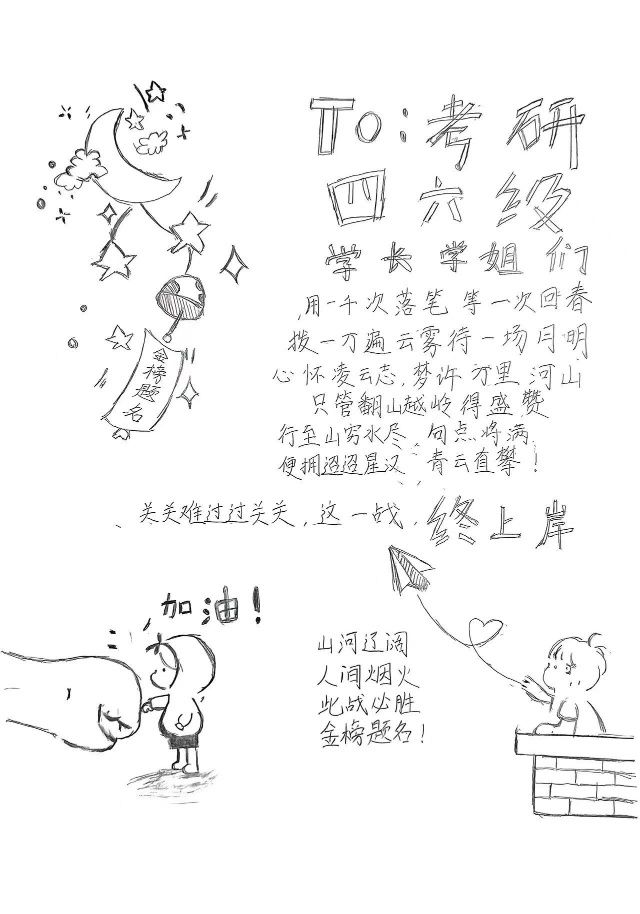 To:考研
四六级
学长学姐们
用一千次落笔 等一次回春
拨一万遍云雾待一场月明
心怀凌云志,梦许万里河山
只管翻山越岭得盛赞
行至山穷水尽,句点将满
便拥迢迢星汉 青云直攀!
关关难过过关关,这一战,终上岸
金榜题名
加油!
山河辽阔
人间烟火
此战必胜
金榜题名!